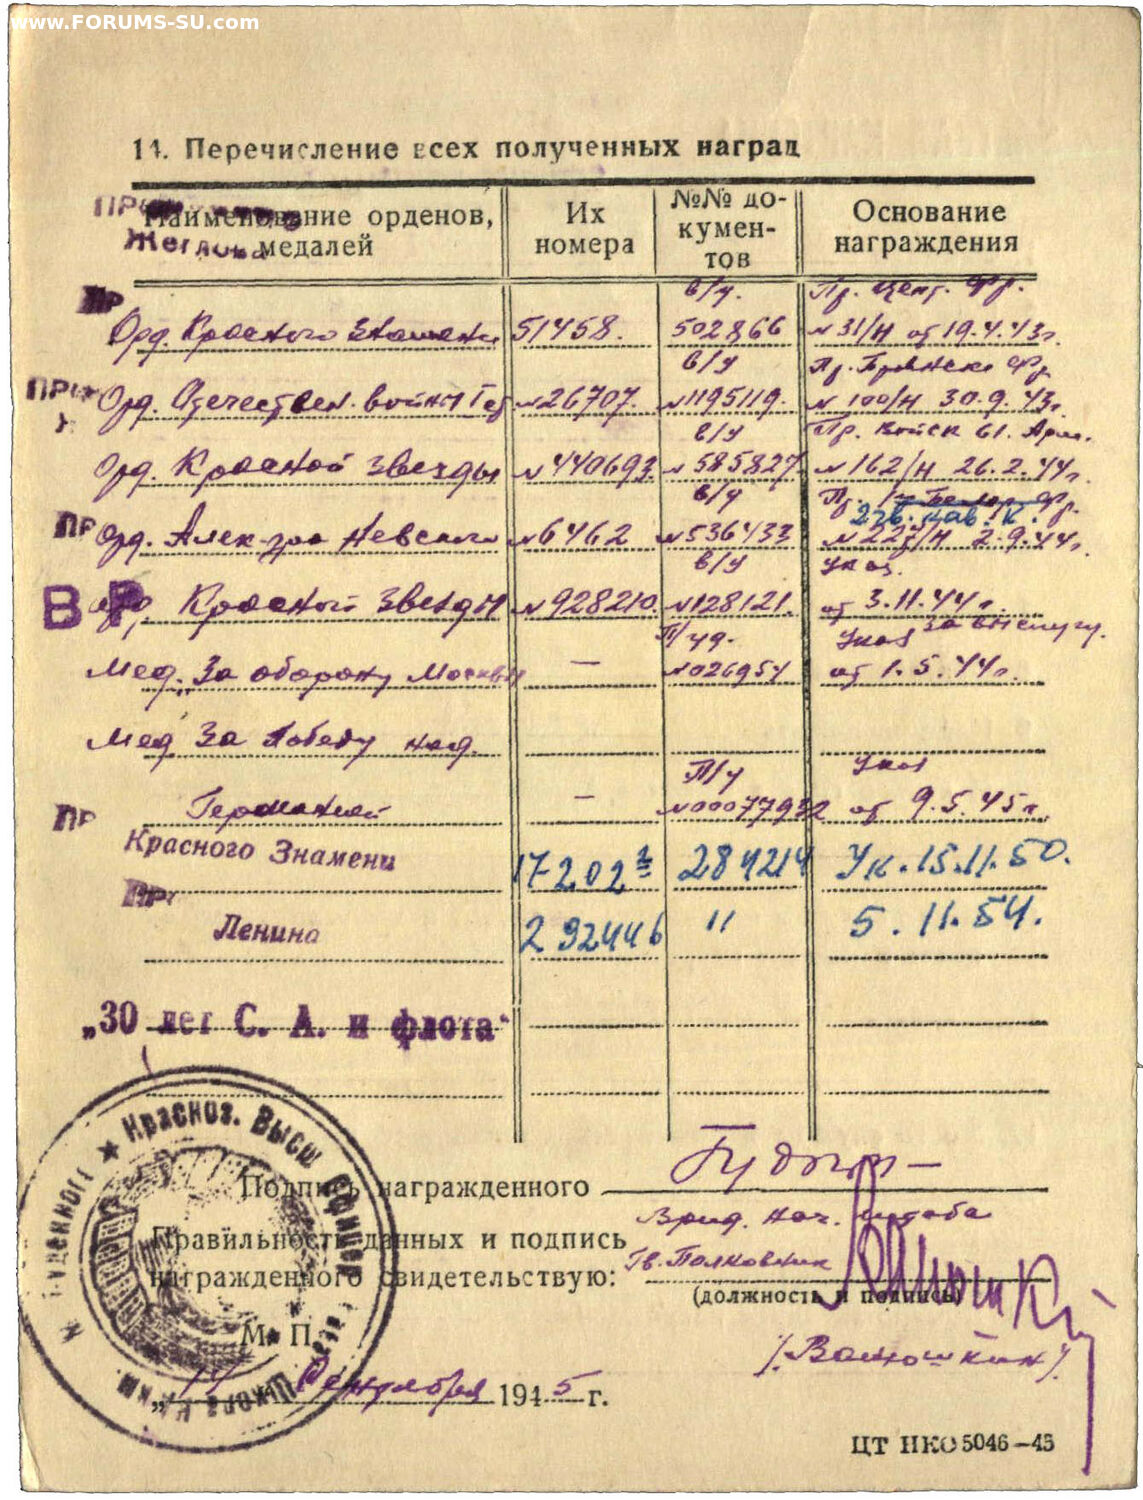 www.FORUMS-SU.com
14. Перечисление всех полученных наград
Наименование орденов, медалей
Их номера
№№ документов
Основание награждения
в/у. Пр. Цент. Фр.
Орд. Красного Знамени 51458. 502866 №31/н от 19.4.43г.
в/у Пр. Брянск. Фр.
Орд. Отечествен. войны I ст №26707. №1195119. №100/н 30.9.43г.
в/у Пр. Войск 61. Арм.
Орд. Красной Звезды №440693. №585827 №162/н 26.2.44г.
в/у Пр. 1 Белор. Фр.
2 гв. кав. к.
Орд. Алек-дра Невского №6462 №536433 № 2.9.44г.
в/у Указ.
Орд. Красной Звезды №928210. №128121. от 3.11.44г.
за выслугу.
П/уд. Указ
Мед. За оборону Москвы — №026954 от 1.5.44г.
Мед За Победу над.
П/у Указ
Германией — №00077932 от 9.5.45г.
Красного Знамени 17202 2 284214 Ук. 15.11.50.
Ленина 292446 " 5.11.54.
„30 лет С. А. и флота"
Подпись награжденного
Врид. Нач. штаба
Правильность данных и подпись
Гв. Полковник
награжденного свидетельствую:
(должность и подпись)
М. П.
/Ванюшкин/
Сентября 1945 г.
Красноз. Высш. Офицер. Школа
ЦТ НКО 5046—45